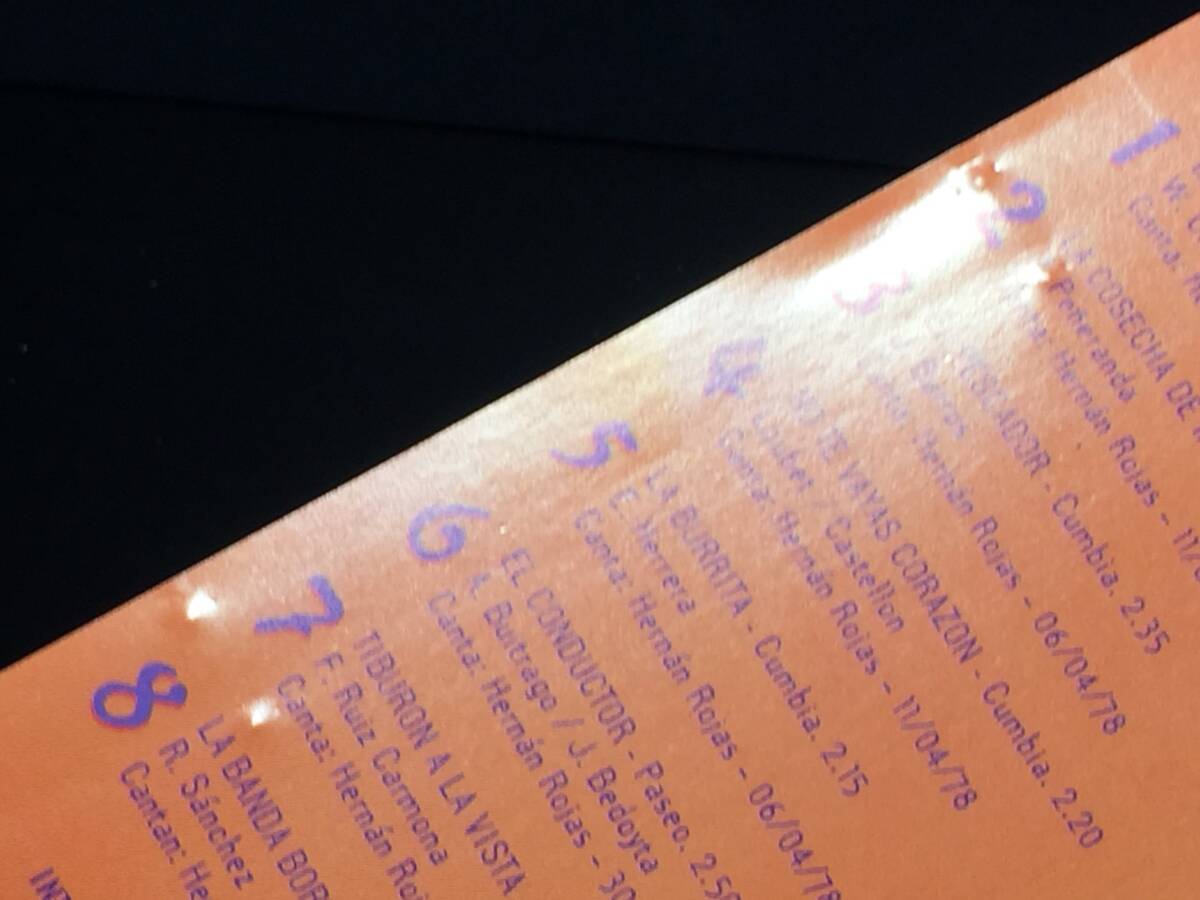 1
W.
Canta:
2
LA COSECHA DE
Peñeranda
Hernán Rojas - 11/
3
- Cumbia. 2.35
J. Barros
Canta: Hernán Rojas - 06/04/78
4
NO TE VAYAS CORAZON - Cumbia. 2.20
/ Castellon
Canta: Hernán Rojas - 11/04/78
5
LA BURRITA - Cumbia. 2.15
E. Herrera
Canta: Hernán Rojas - 06/04/78
6
EL CONDUCTOR - Paseo. 2.5
A. Buitrago / J. Bedoyta
Canta: Hernán Rojas - 30
7
TIBURON A LA VISTA
F. Ruiz Carmona
Canta: Hernán Roj
8
LA BANDA BOR
R. Sánchez
Cantan: He
INT